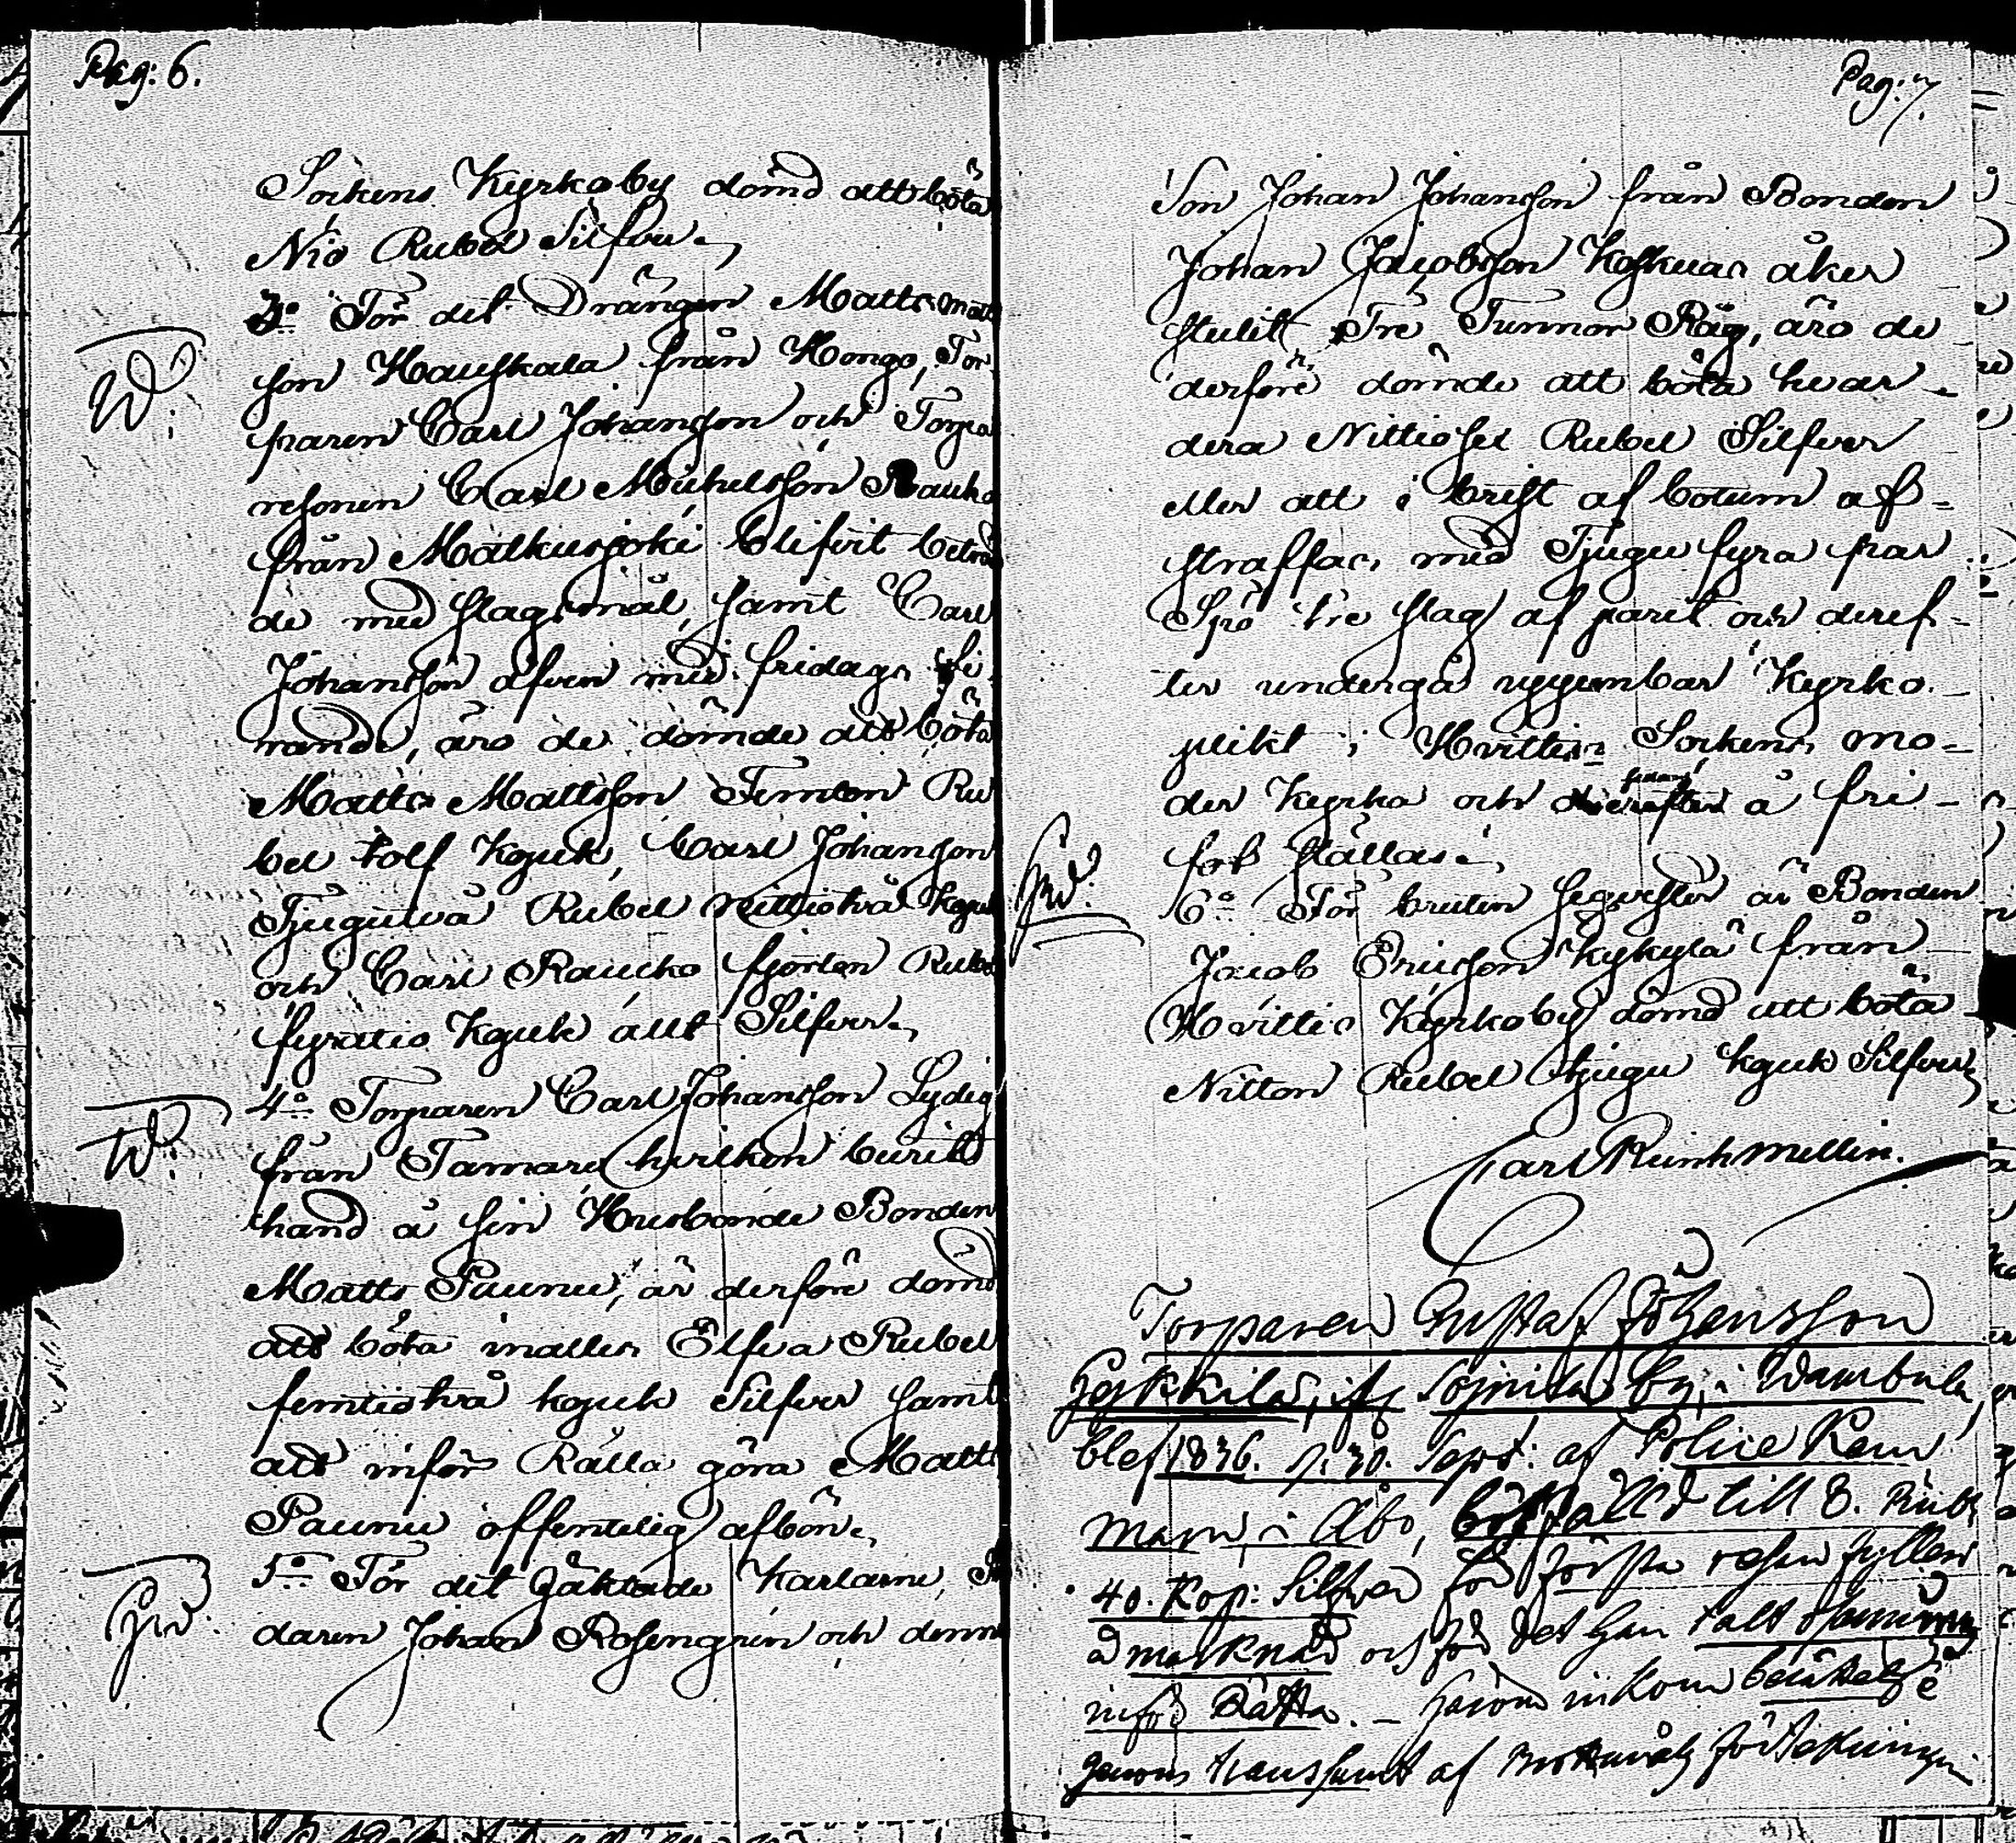 Pag: 6.
Sockens Kyrkoby dömd att böta
Nio Rubel Silfver.
3:o För det Drängen Matts Matts
son Hauskala från Hongo, Tor
paren Carl Johansson och Torpa
resonen Carl Michelsson Raucko
från Matkusjoki blifvit beträd
de med slagsmål, samt Carl
Johansson äfven med fridags fi
rande, äro de dömde att böta
Matts Mattsson Femton Ru
bel tolf Kopek, Carl Johansson
Tjugutvå Rubel nittiotvå Kopek
och Carl Raucko fjorton Rubel
fyratio Kopek allt Silfver.
W:
4:o Torparen Carl Johansson Lydig
från Tamare, hvilken burit
hand å sin Husbonde Bonden
Matts Paunu, är derföre dömd
att böta Elfva Rubel
femtiotvå kopek Silfver samt
att inför Rätta göra Matts
Paunu offentelig afbön.
W:
5:o För det Häktade Karlarne,
daren Johan Rosengren och denne
Pag: 7.
Son Johan Johansson från Bonden
Johan Jacobsson Koskuas åker
stulit Tre Tunnor Råg, äro de
derföre dömde att böta hvar-
dera Nittiosex Rubel Silfver
eller att i brist af botum af-
straffas med Tjugu fyra par
Spö tre slag af paret och deref-
ter undergå uppenbar Kyrko-
plikt i Hvittis Sockens mo-
der Kyrka och sedan å fri-
fot ställas.
6:o För bruten seqvester är Bonden
Jacob Ericsson Kykylä från
Hvittis Kyrkoby dömd att böta
Nitton Rubel tjugu kopek Silfver
Carl Reinh Mellin.
Torparen Gustaf Johansson
ifr Sojnila by, i Wambula,
blef 1836. d. 30. Sept: af Police Kam
maren i Åbo, bötfälld till 8. Rubl
40. Kop: Silfver för första resan fylleri
å marknad och för det han talt osanning
inför Rätta. – Härom inkom
genom transsumt af Förteckningen